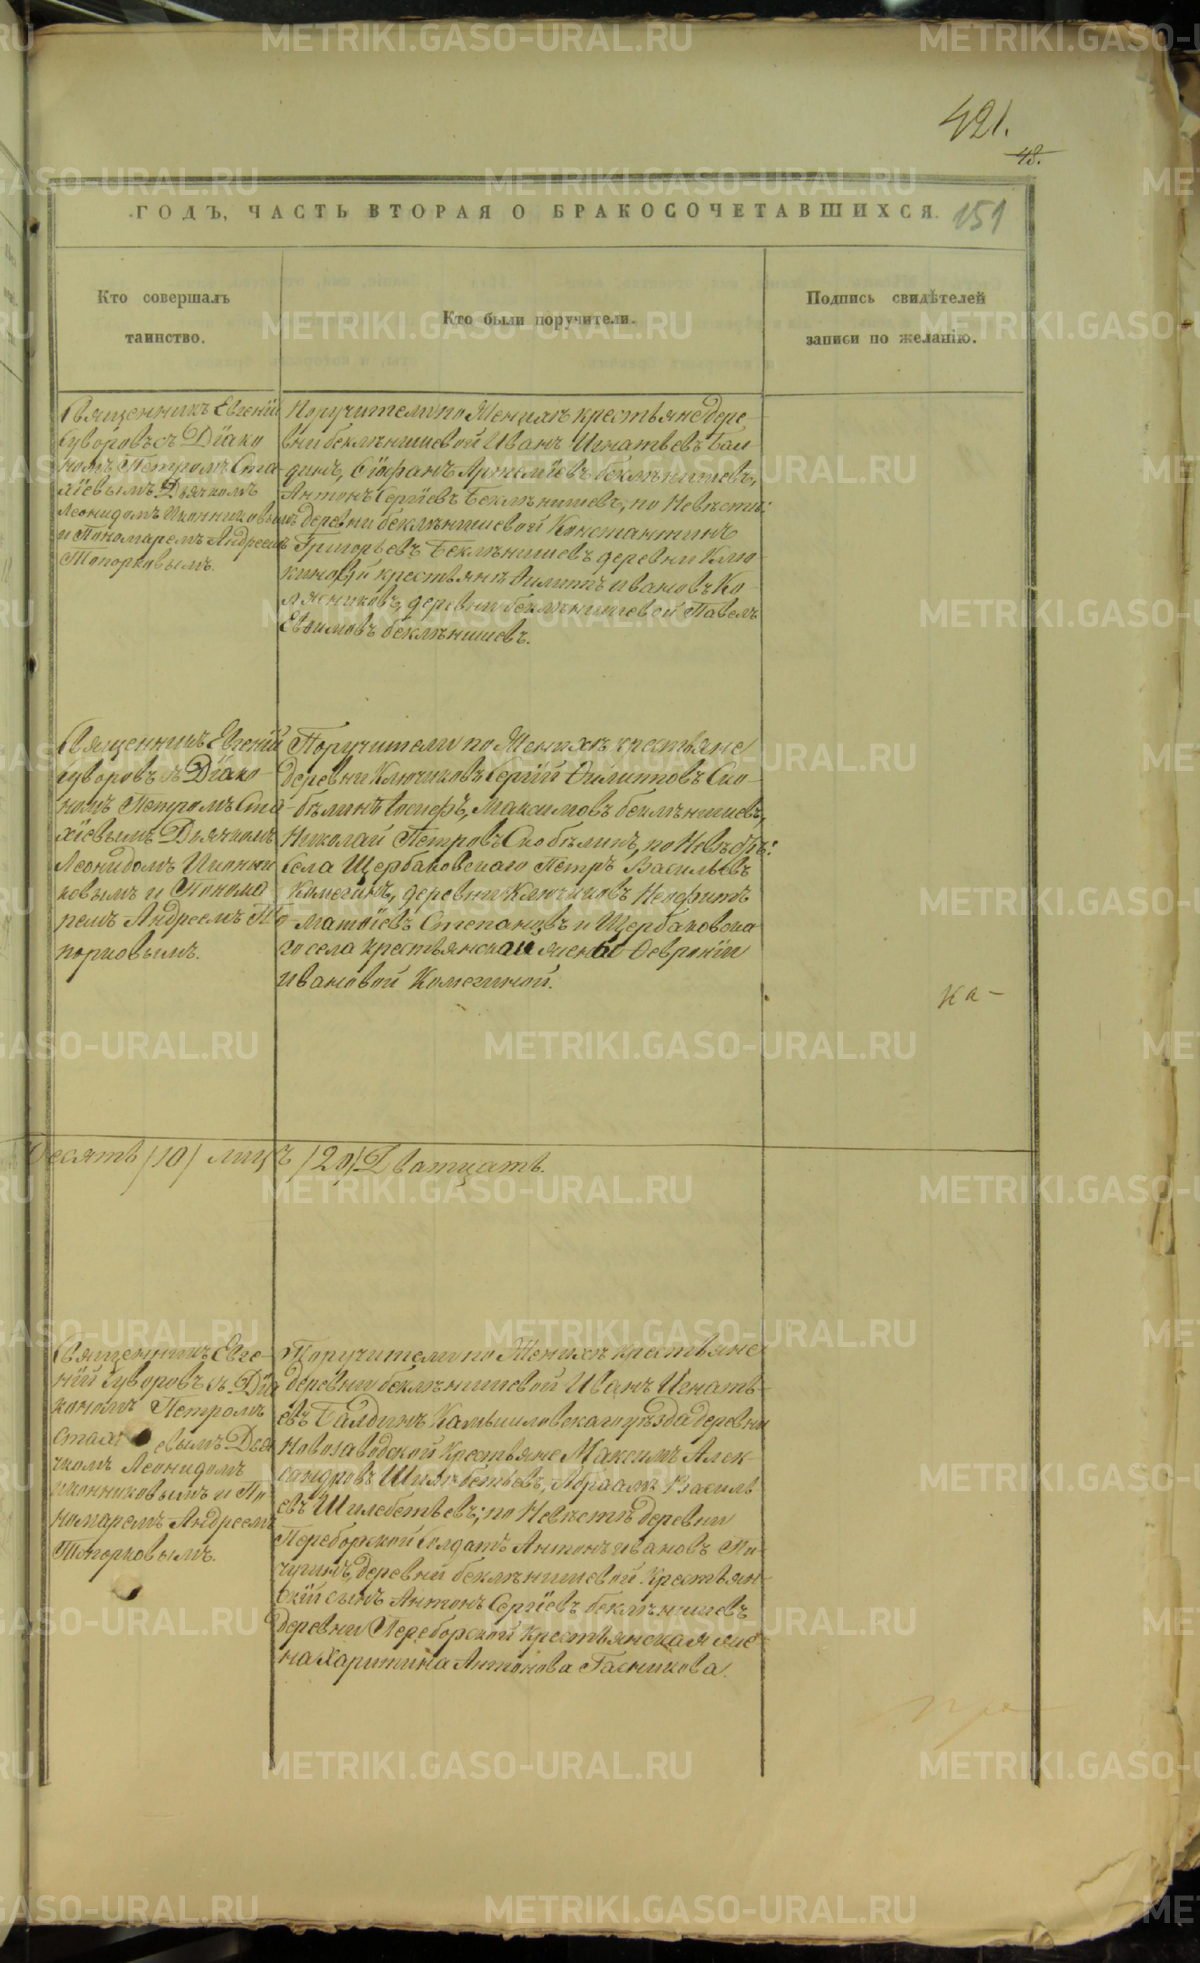 421.
48.
ГОДЪ, ЧАСТЬ ВТОРАЯ О БРАКОСОЧЕТАВШИХСЯ.
151
Кто совершалъ
таинство.
Кто были поручители.
Подпись свидѣтелей
записи по желанію.
Священникъ Евгеній
Суворовъ съ Діако
номъ Петромъ Ста
хіевымъ Дьячкомъ
Леонидомъ Иконниковымъ
и Пономаремъ Андреемъ
Топорковымъ.
Поручители по Женихѣ крестьяне дере
вни беклѣнишевой Иванъ Игнатьевъ Бал-
динъ, Стефанъ Артемьевъ беклѣнишевъ,
Антонъ Сергіевъ Беклѣнишевъ; по Невѣстѣ:
деревни беклѣнишевой Константинъ
Григорьевъ Беклѣнишевъ деревни Клю
киной крестьянъ Филиппъ Ивановъ Ко
лясниковъ, деревни беклѣнишевой Павелъ
Евфимовъ беклѣнишевъ.
Священникъ Евгеній
Суворовъ съ Діако-
номъ Петромъ Ста
хіевымъ Дьячкомъ
Леонидомъ Иконни
ковымъ и Понома
ремъ Андреемъ То
порковымъ.
Поручители по Женихѣ крестьяне
деревни Ключиковъ Сергій Филипповъ Ско-
бѣлинъ Іосифъ, Максимовъ беклѣнишевъ,
Николай Петровъ Скобѣлинъ, по Невѣстѣ:
села Щербаковскаго Петръ Васильевъ
Комегинъ, деревни Ключиковъ Неофитъ
Матѳіевъ Степановъ и Щербаковска
го села крестьянская жена Февронія
Ивановой Комегиной.
Ка-
Десять /10/ лицъ /20/ Дватцать.
Священникъ Евге-
ній Суворовъ съ Діа
кономъ Петромъ
Стахіевымъ Дья
чкомъ Леонидомъ
Иконниковымъ и По
номаремъ Андреемъ
Топорковымъ.
Поручители по Женихѣ крестьяне
деревни беклѣнишевой Иванъ Игнать-
евъ Балдинъ Камышловскаго уѣзда деревни
Новозаводской Крестьяне Максимъ Алек-
сандровъ Шилебетьевъ, Авраамъ Василь
евъ Шилебетьевъ; по Невѣстѣ деревни
Переборской Солдатъ Антонъ Ивановъ Пи-
чугинъ, деревни беклѣнишевой Крестьян-
скій сынъ Антонъ Сергіевъ беклѣнишевъ
деревни Переборской Крестьянская же
на Харитина Антонова Гасникова.
METRIKI.GASO-URAL.RU